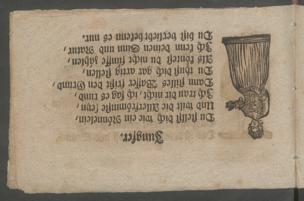 Jungfer.
Du stellst dich wie ein Nönnelein,
Und wilt die Allerfrömmste seyn,
Ich trau dir nicht, ich sag es rund,
Dann stilles Wasser frist den Grund,
Du thust dich gar artig stellen,
Als köntest du nicht fünffe zehlen,
Ich kenn deinen Sinn und Natur,
Dist betriebstdern es nur.